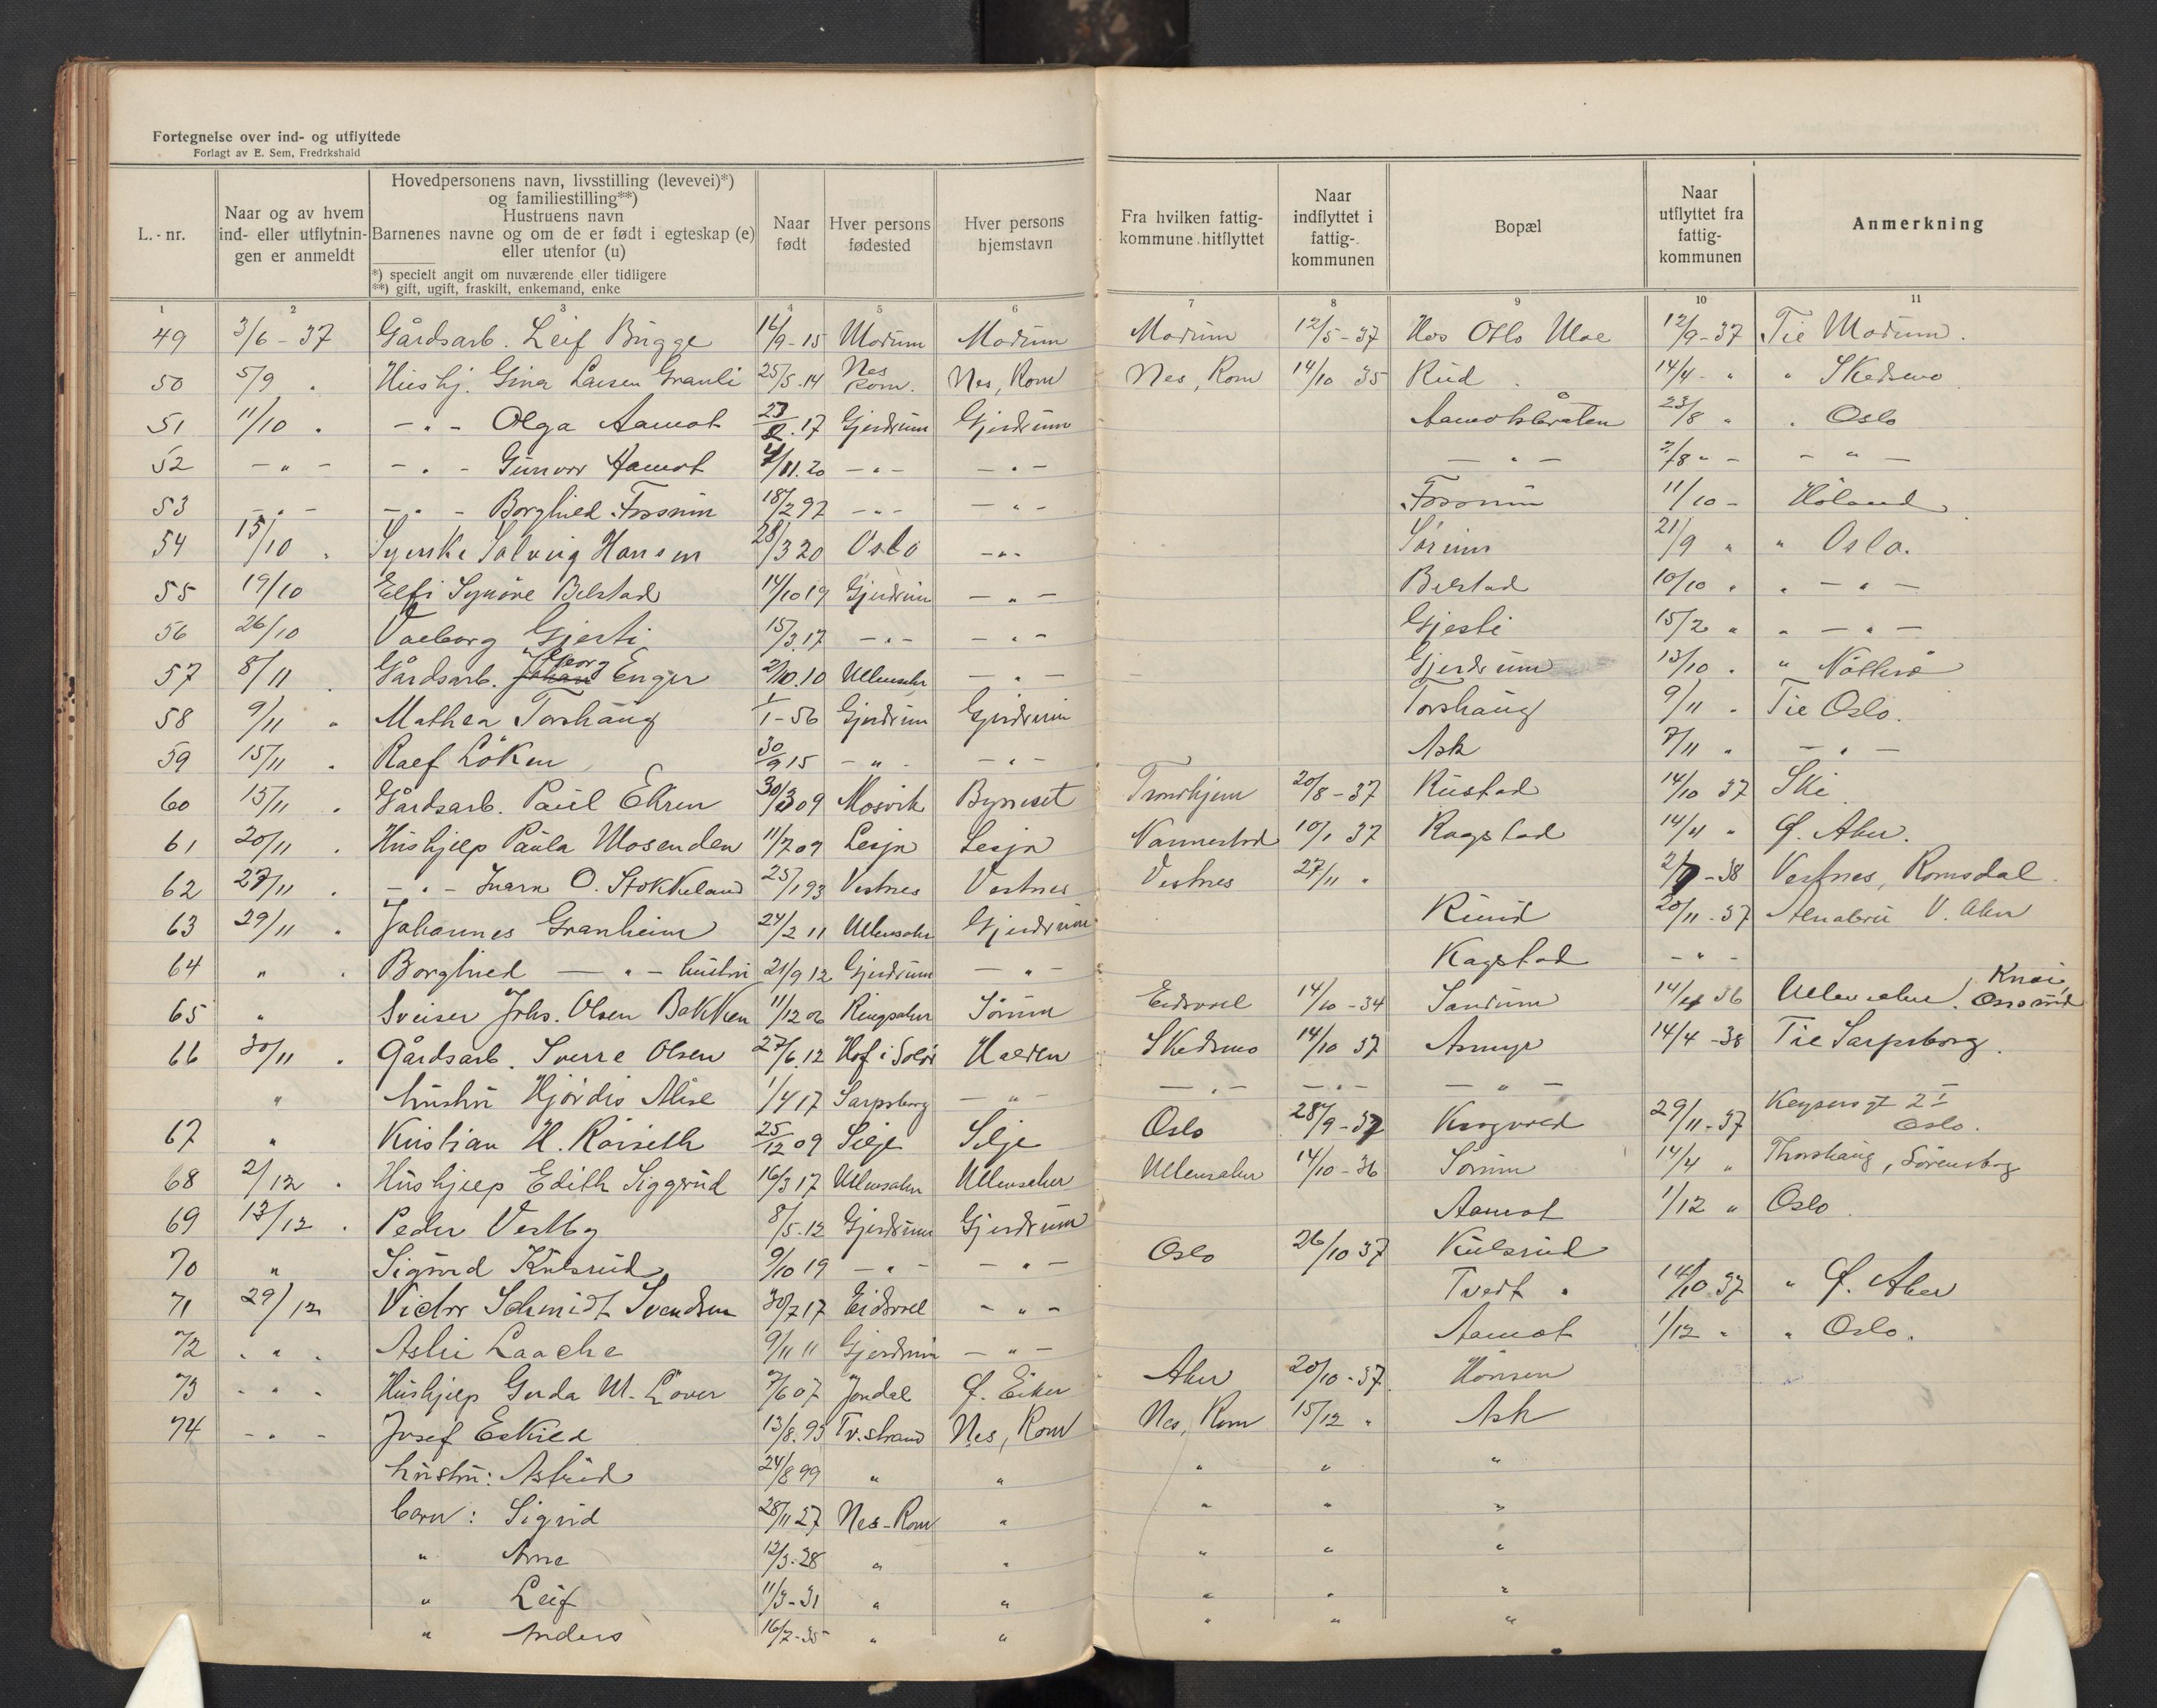 Fortegnelse over ind- og utflyttede
Forlagt av E. Sem, Fredrkshald
L.-nr. | Naar og av hvem ind- eller utflytningen er anmeldt | Hovedpersonens navn, livsstilling (levevei)*) og familiestilling**) Hustruens navn Barnenes navne og om de er født i egteskap (e) eller utenfor (u) *) specielt angit om nuværende eller tidligere **) gift, ugift, fraskilt, enkemand, enke | Naar født | Hver persons fødested | Hver persons hjemstavn | Fra hvilken fattigkommune hitflyttet | Naar indflyttet i fattig-kommunen | Bopæl | Naar utflyttet fra fattig-kommunen | Anmerkning
1 2 3 4 5 6 7 8 9 10 11
49 3/6-37 Gårdsarb. Leif Bugge 16/9-15 Modum Modum Modum 12/5-37 Hos Otto Moe 12/9-37 Til Modum.
50 5/9 " Hushj. Gina Larsen Granli 25/5.14 Nes Rom. Nes, Rom Nes, Rom 14/10 35 Rud 14/4 - " " Skedsmo
51 11/10 " - " - Olga Aamot 23/2.17 Gjerdrum Gjerdrum Aamotbråten 23/8 " " Oslo
52 - " - - " - Gunvor Aamot 4/11.20 - " - - " - - " - 2/8 " - - " -
53 - " - - " - Borghild Fossum 18/2 97 - " - - " - Fossum 11/10 - Høland
54 15/10 " Syerske Solveig Hansen 28/3 20 Oslo - " - Sørum 21/9 " " Oslo.
55 19/10 Elfi Synöve Belstad 14/10 19 Gjerdrum - " - Belstad 10/10 " " - " -
56 26/10 Valborg Gjesti 15/3.17 - " - - " - Gjesti 15/2 " " - " -
57 8/11 " Gårdsarb. Johan Georg Enger 2/10.10 Ullensaker - " - Gjerdrum 13/10 " " Nötterö
58 9/11 " Mathea Torshaug 1/1-56 Gjerdrum Gjerdrum Torshaug 9/11 " Til Oslo.
59 15/11 " Ralf Löken 30/9 15 - " - - " - Ask 7/11 " - " -
60 15/11 " Gårdsarb. Paul Ekren 30/3 09 Mosvik Byneset Trondhjem 20/8-37 Rustad 14/10 37 Ski
61 20/11 " Hushjelp Paula Mosenden 11/7 09 Lesja Lesja Nannestad 10/1 37 Ragstad 14/4 " Ö. Aker.
62 27/11 " - " - O. Stokkeland 25/1 93 Vestnes Vestnes Vestnes 27/11 " 2/7-38 Vestnes, Romsdal
63 29/11 " Johannes Granheim 24/2 11 Ullensaker Gjerdrum Ruud 20/11-37 Alnabru V. Aker
64 " " Borghild - " - hustru 21/9 12 Gjerdrum - " - Kagstad - " -
65 " Sveiser Johs. Olsen Bakken 11/12 06 Ringsaker Sörum Eidsvoll 14/10-34 Sandum 14/4 36 Ullensaker,
66 30/11 " Gårdsarb. Sverre Olsen 27/6.12 Hof i Solör Halden Skedsmo 14/10 37 Asmyr 14/4-38 Til Sarpsborg.
" hustru Hjördis Alise 1/4 17 Sarpsborg - " - - " - - " - - " -
67 " Kristian H. Röiseth 25/12 09 Selje Selje Oslo 28/9-37 Krogvold 29/11-37 Keysersgt 2 I Oslo.
68 2/12 " Hushjelp Edith Siggerud 16/3 17 Ullensaker Ullensaker Ullensaker 14/10-36 Sörum 14/4 " Thorshaug, Sörensborg
69 13/12 " Peder Vestby 8/5.12 Gjerdrum Gjerdrum Aamot 1/12 " Oslo
70 " Sigurd Kulsrud 9/10 19 - " - - " - Oslo 26/10 37 Kulsrud
71 29/12 Victor Schmidt Svendsen 30/7 17 Eidsvoll - " - Tvedt " 14/10 37 " Ö. Aker
72 " " " Aslei Laache 9/11 11 Gjerdrum - " - Aamot 1/12 " " Oslo.
73 - " - Hushjelp Gerda M. Löver 7/6 07 Jondal Ö. Eiker Aker 20/10-37 Hönsen
74 - " - Josef Eskild 13/8.93 Tv.strand Nes, Rom Nes, Rom 15/12 " Ask
hustru: Astrid 24/8 99 " " " " "
barn: Sigrid 28/11 27 Nes-Rom " " " "
" Arne 12/3-28 " " " " "
" Leif 11/3-31 " " " " "
" Anders 16/7-35 " " " " "